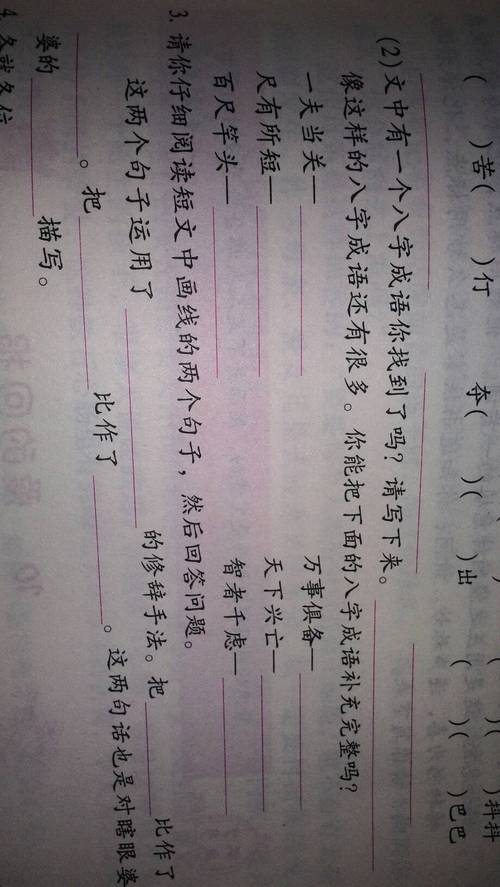 ) ( )抖抖
( )苦( )行 夺( )( )出 ( )( )巴巴
(2)文中有一个八字成语你找到了吗?请写下来。
像这样的八字成语还有很多。你能把下面的八字成语补充完整吗?
一夫当关—________ 万事俱备—________
尺有所短—________ 天下兴亡—________
百尺竿头—________ 智者千虑—________
3. 请你仔细阅读短文中画线的两个句子,然后回答问题。
这两个句子运用了________的修辞手法。把________比作了
________。把________比作了________。这两句话也是对瞎眼婆
婆的________描写。
4.